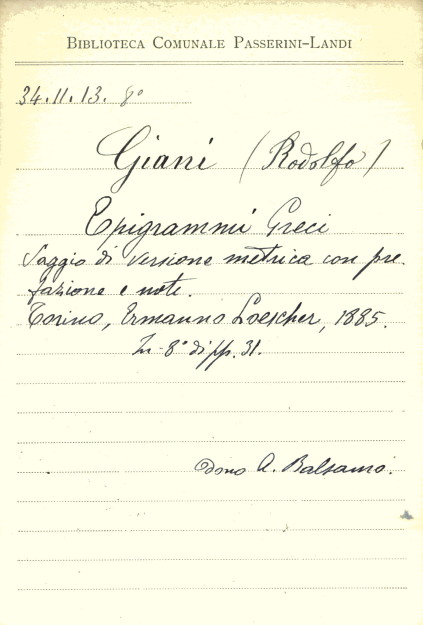 BIBLIOTECA COMUNALE PASSERINI-LANDI
34.11.13. 8°
Giani (Rodolfo)
Epigrammi Greci
Saggio di versione metrica con pre-
fazione e note.
Torino, Ermanno Loescher, 1885.
In-8° di pp. 31.
dono A. Balsamo.